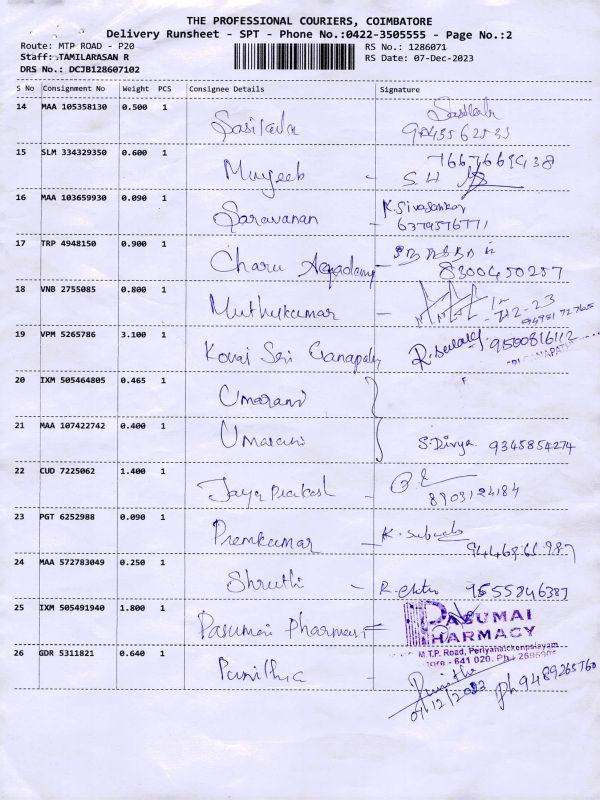 THE PROFESSIONAL COURIERS, COIMBATORE
Delivery Runsheet - SPT - Phone No.:0422-3505555 - Page No.:2
Route: MTP ROAD - P20
RS No.: 1286071
Staff: TAMILARASAN R
RS Date: 07-Dec-2023
DRS No.: DCJB128607102
S No Consignment No Weight PCS Consignee Details Signature
14 MAA 105358130 0.500 1 Sasikala
15 SLM 334329350 0.600 1 Mujeeb - 7667669438
S.H
16 MAA 103659930 0.090 1 Saravanan - K.Sivasankar
6379576771
17 TRP 4948150 0.900 1 Charu Acqademy
8300450257
18 VNB 2755085 0.800 1 Muthukumar -
19 VPM 5265786 3.100 1 Kovai Sri Ganapathy 9500816112
20 IXM 505464805 0.465 1 Umarani
21 MAA 107422742 0.400 1 Umarani S.Divya 9345854274
22 CUD 7225062 1.400 1 Jaya Prakash -
8903124184
23 PGT 6252988 0.090 1 Premkumar -
24 MAA 572783049 0.250 1 Shruthi -
25 IXM 505491940 1.800 1 Pasumai Pharmacy
PASUMAI
PHARMACY
M.T.P. Road, Periyanaickenpalayam
26 GDR 5311821 0.640 1 Punitha - Punitha
07/12/2023 Ph 9489265760